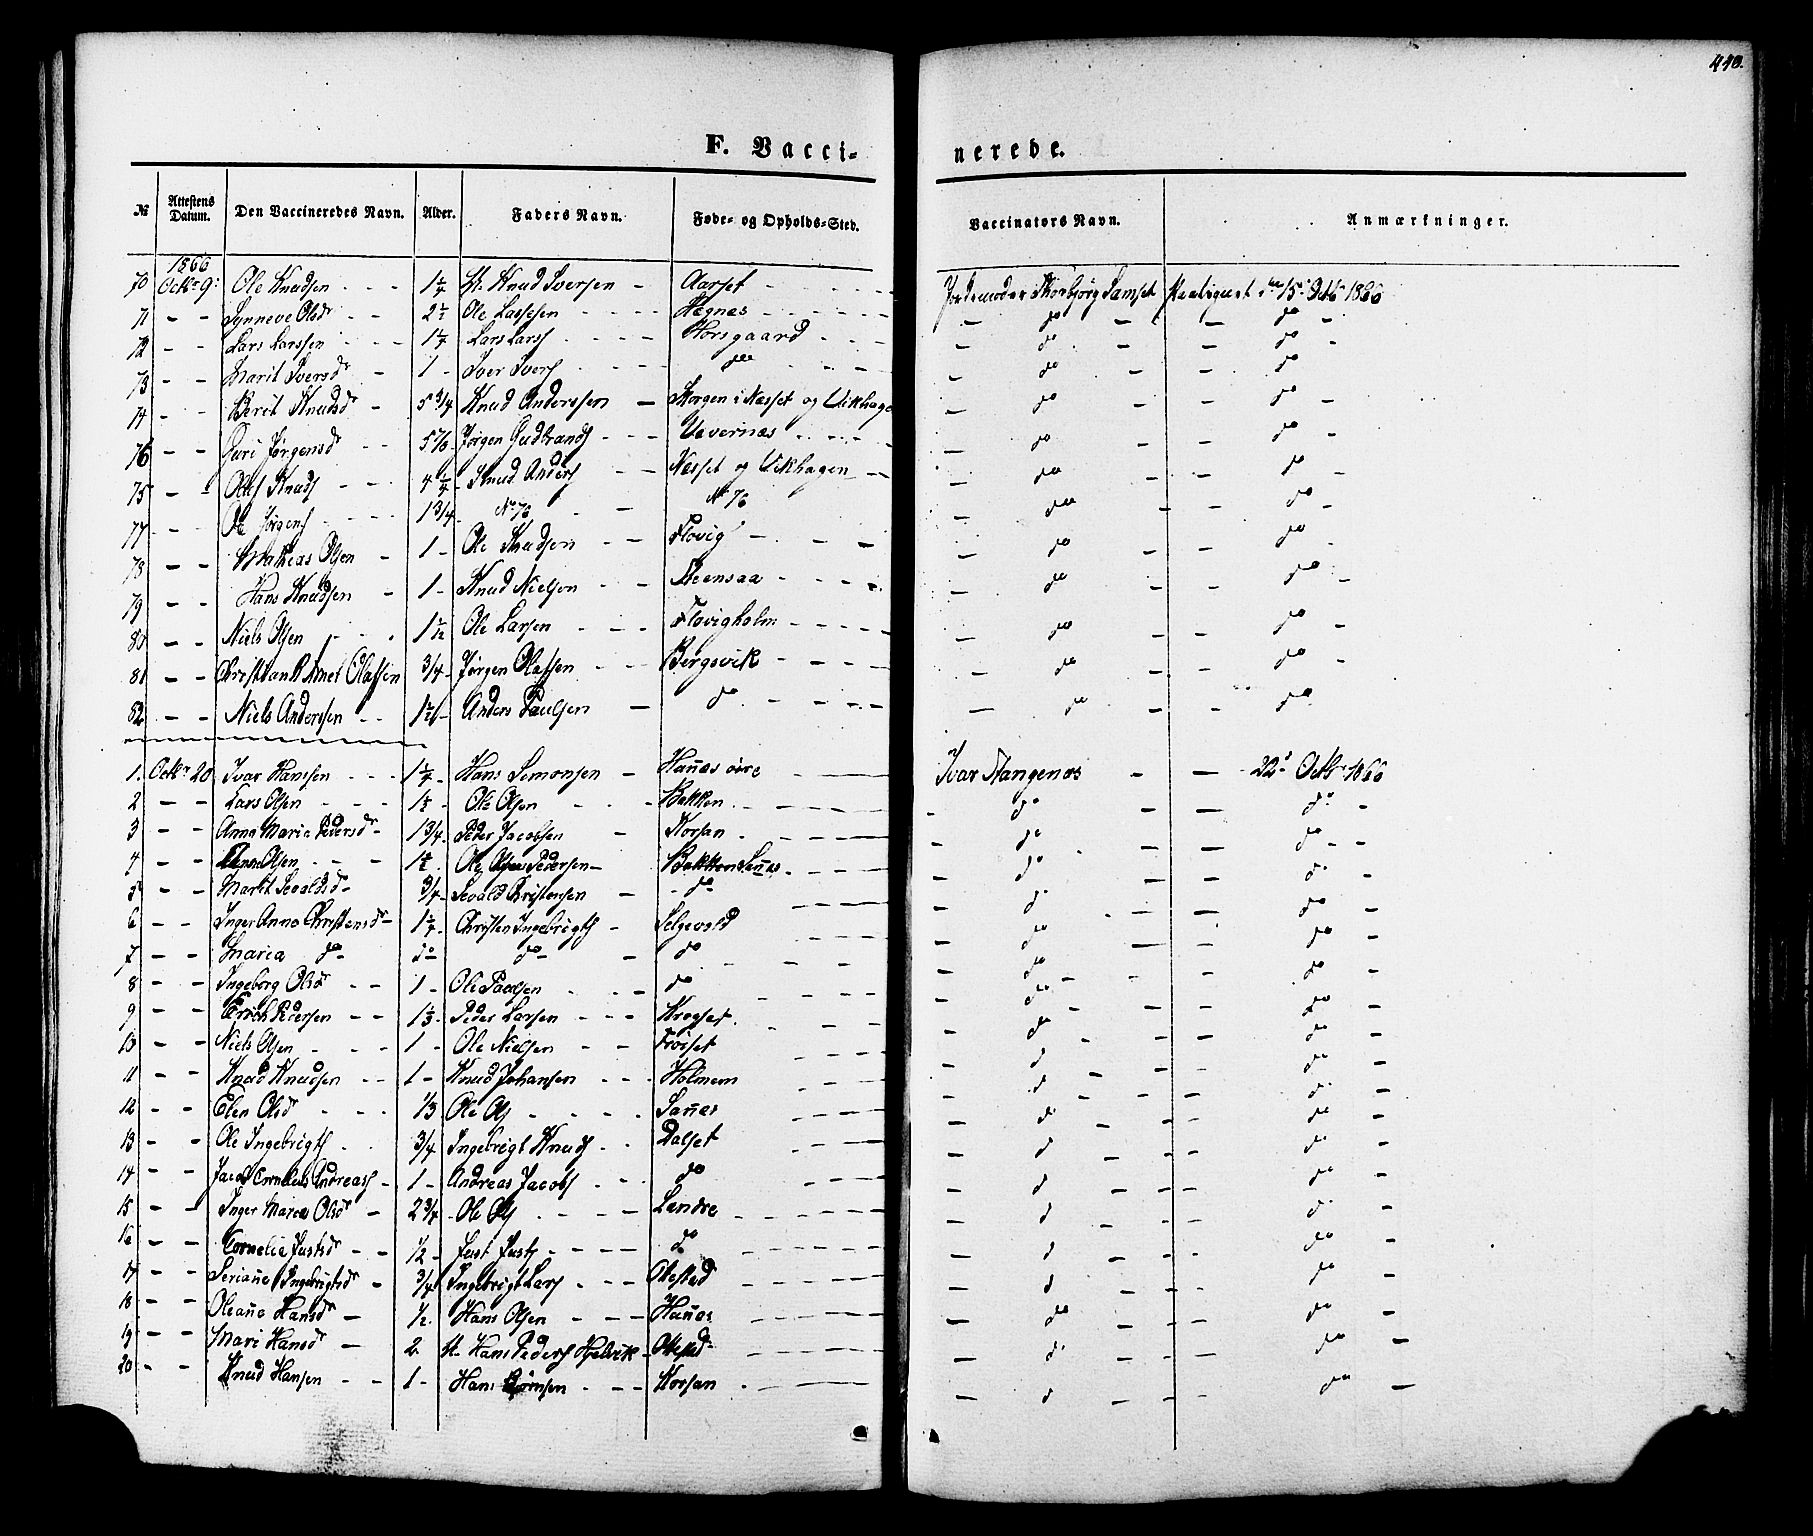 440.
F. Vacci- nerede.
№ Attestens Datum. Den Vaccineredes Navn. Alder. Faders Navn. Føde- og Opholds-Sted. Vaccinators Navn. Anmærkninger.
1866
70 Octbr 9: Ole Knudsen - - - 1 1/4 Knud Iversen - Aarset - Jordemoder Thorbjørg Samset Paategnet den 15. Octb 1866
71 - - Synneve Olsdr - - 2 1/2 Ole Lassesen - - - - Hegnes - - - - - do - - do -
72 - - Lars Larssen - - - 1 1/4 Lars Larss - - - - Horsgaard - - - - do - - do -
73 - - Marit Iversdr - 1 - Iver Ivers - - - - do - - - - do - - do -
74 - - Berit Knudsd - 5 3/4 Knud Anderssen - Korgen i Nesset og Vikhagen - do - - do -
76 - - Guri Jørgensd - - 5 7/8 Jørgen Gudbrands - - - Vevernæs - - - - do - - do -
75 - - Ole Knuds - - - 4 1/4 - Knud Anders - - Nesset og Vikhagen - - do - - do -
77 - - Ole Jørgens - - - 1 3/4 - No 76 - - No 76 - do - - do -
78 - - Mathias Olsen - 1 - Ole Knudsen - - Flovig - - - - do - - do -
79 - - Hans Knudsen - 1 - Knud Nielsen - - - Steensaa - - - - - do - - do -
80 - - Niels Olsen - - - 1 1/12 Ole Larsen - - - Flovigholm - - - - - do - - do -
81 - - Christian Olassen 3/4 - Jørgen Olassen - - - Bergsvik - - - - - do - - do -
82 - - Niels Anderssen - - 1 1/2 - Anders Paulsen - do - - - - - do - - do
1. Octbr 20 Ivar Hanssen - - - 1 1/4 - Hans Simonsen - Han̄es øire - Ivar Stangenes - - 22de Octbr 1866
2 - - Lars Olsen - - - 1 1/2 - Ole Olsen - - - Bakken - - - - do - - do -
3 - - Anna Maria Pedersdr - 1 3/4 - Peder Jacobsen - Korsan - - - - do - - do - -
4 - - Olsen - - - 1 1/2 - Ole Pedersen - Bakken San̄es - - - do - - do -
5 - - Marit Sevaldsd - 3/4 - Sevald Christensen - do - - - do - - do -
6 - - Inger Anna Christensdr - 1 1/4 - Christen Ingebrigts - Selgevold - - - do - - do -
7 - - Maria do - do - do - do - - - do - - do -
8 - - Ingeborg Olsdr - - 1 - Ole Paulsen - - do - - - do - - do -
9 - - Erich Pedersen - - 1 1/3 - Peder Larsen - - - Krogset - - - do - - do -
10 - - Niels Olsen - - - 1 - Ole Nielsen - - Frøiset - - - do - - do -
11 - - Knud Knudsen - - 1 - Knud Johansen - - - Holmem - - - d - - do -
12 - - Elen Olsdr - - - 1/3 Ole Ols - - - - San̄es - - - d - - do -
13 - - Ole Ingebrigts - - 3/4 - Ingebrigt Knuds - - Dalset - - - d - - do -
14 - - Jacob Cornelius Andreass - 1 - Andreas Jacobs - - - do - - - d - - do -
15 - - Inger Maria Olsdr - 2 3/4 - Ole Ols - - - Landre - - - d - - do -
16 - - Cornelia Justsdr - - 1/2 - Just Justs - - - - do - - - d - - do -
17 - - Serian̄e Ingebrigtsdr - 3/4 Ingebrigt Lars - - - Okestad - - - d - - do -
18 - - Olean̄a Hansdr - 1/2 - Hans Olsen - - - Han̄es - - - do - - do -
19 - - Mari Hansdr - 2 - Hans Peders Hjelvik - Okestad - - - d - - do -
20 - - Knud Hansen - - 1 - Hans - - - Korsan - - - d - - do -